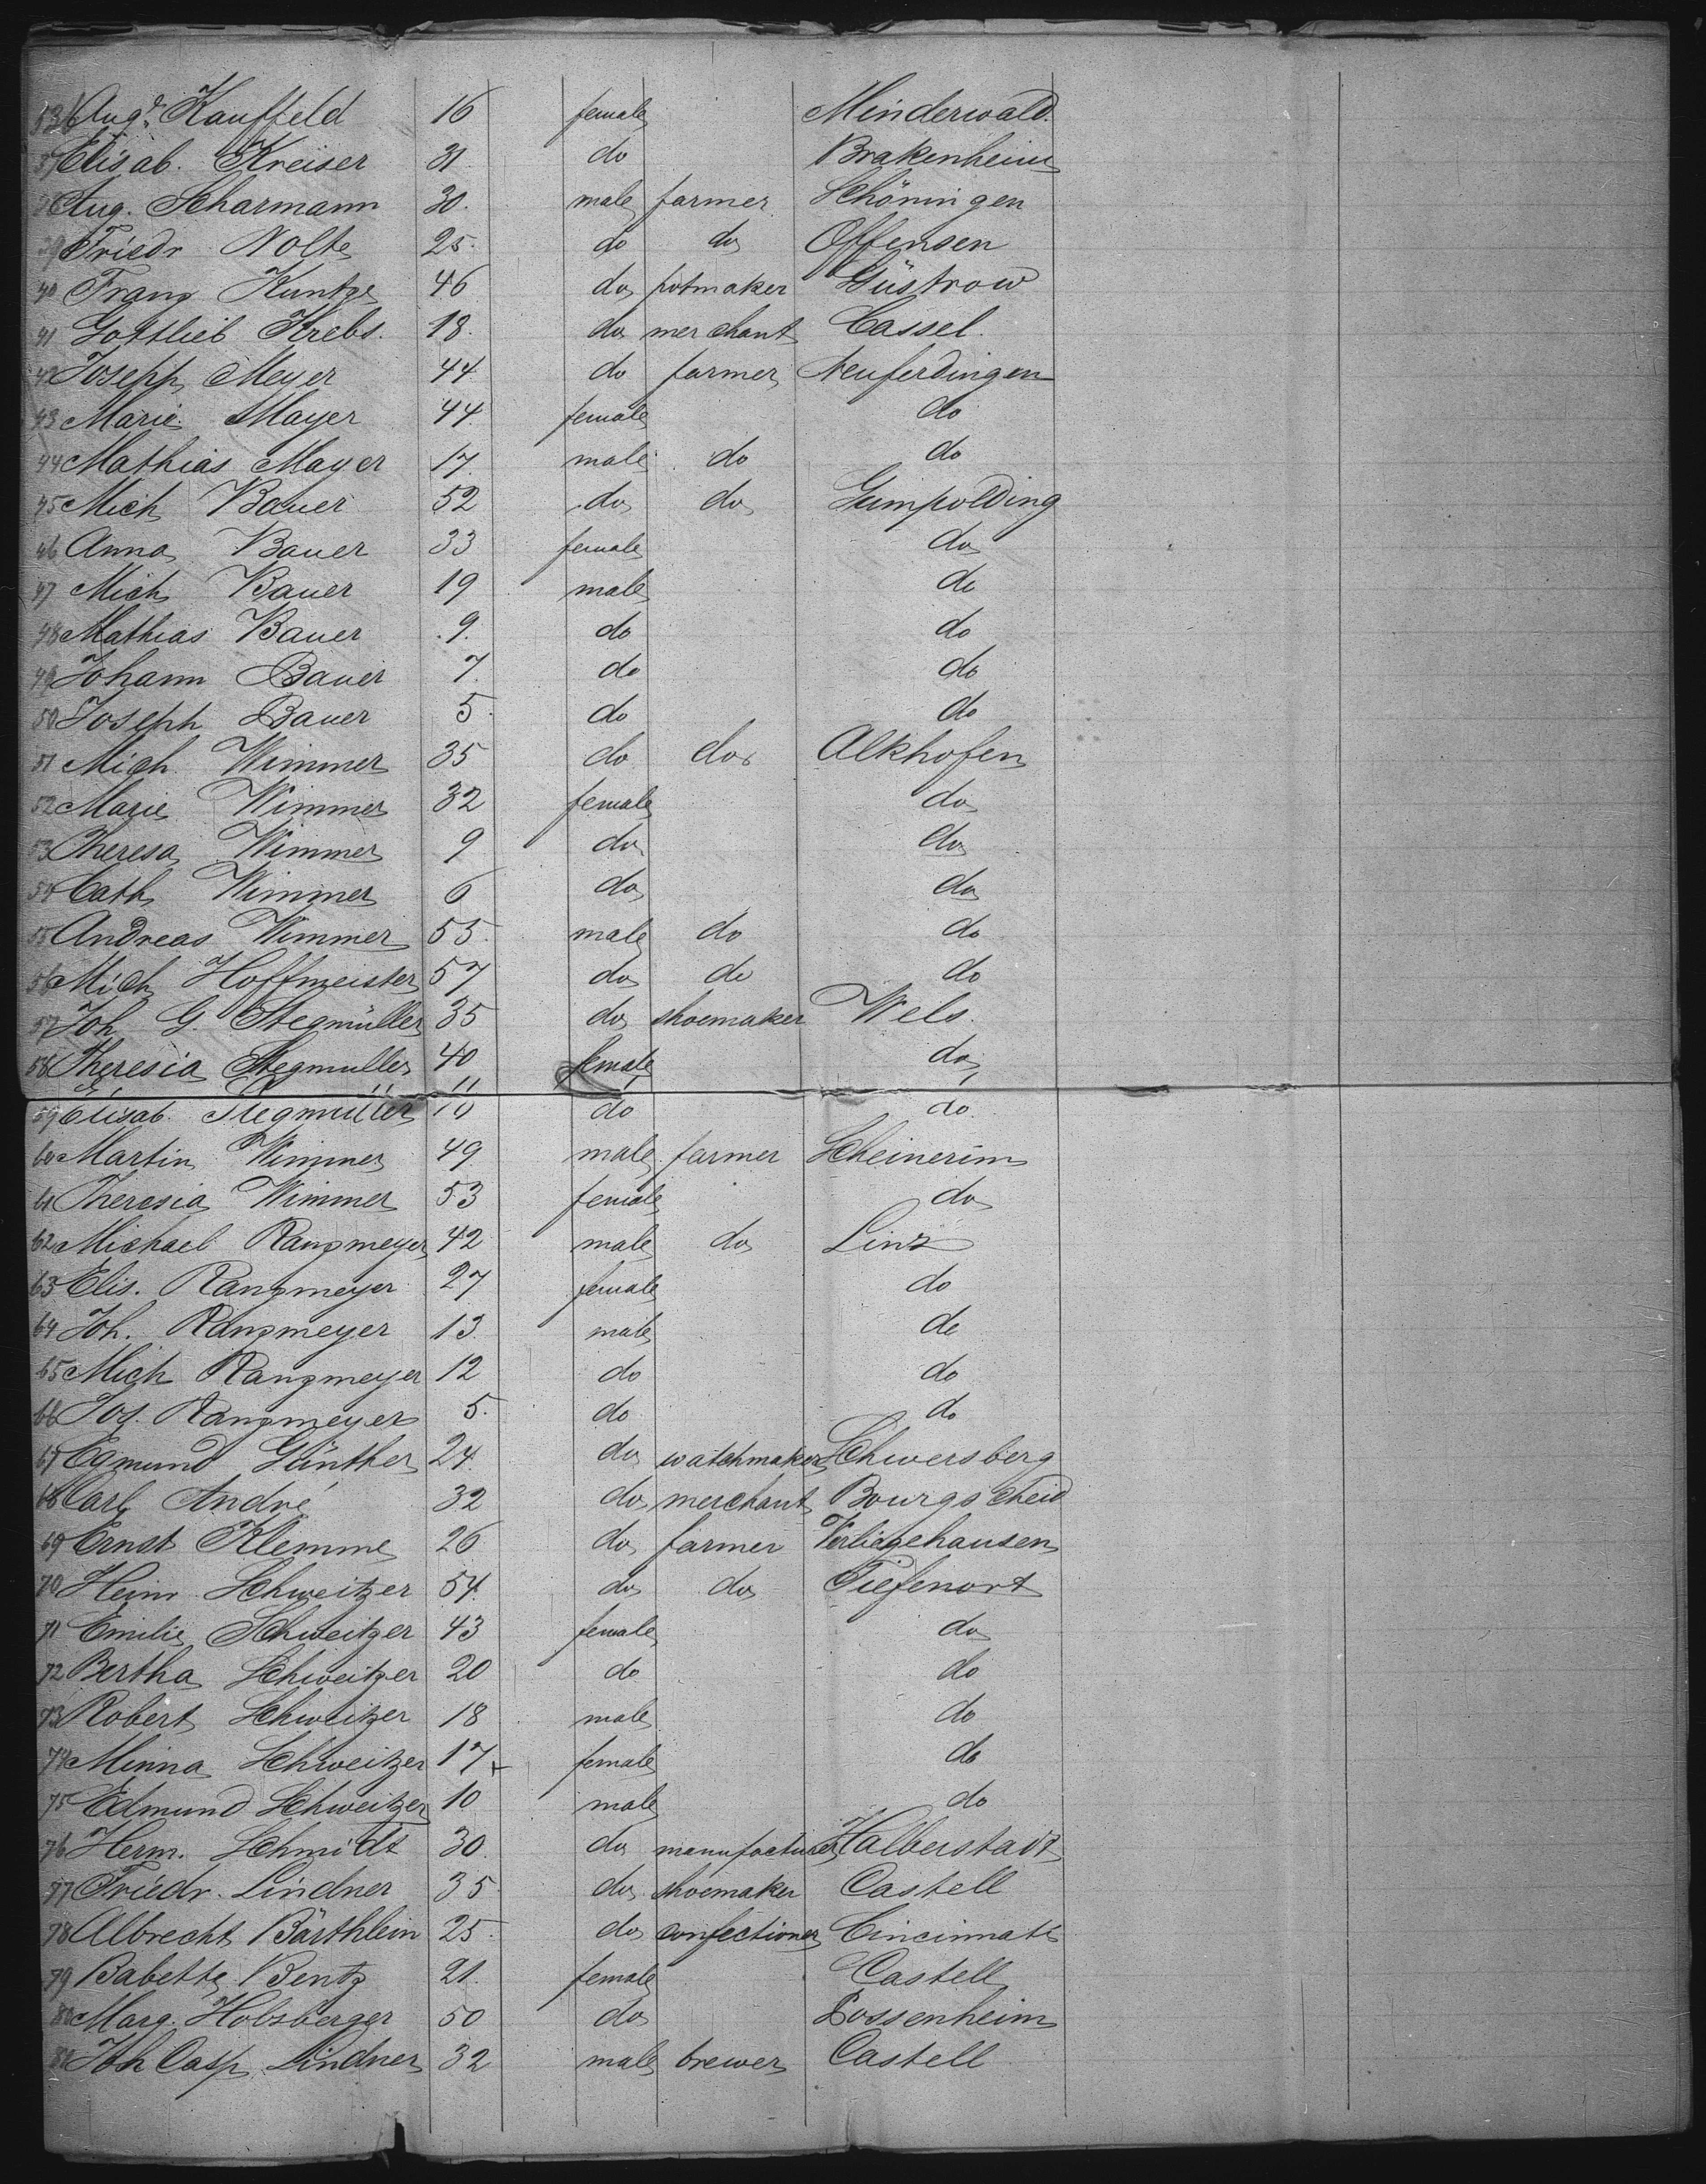 536 Aug.e Kauffeld 16 female Minderwald.
37 Elisab. Kreiser 31. do Brakenheim
38 Aug. Scharmann 30. male farmer Schöningen
39 Friedr Nolte 25. do do Offensen
40 Franz Kuntze 46 do potmaker Güstrow
41 Gottlieb Krebs. 18. do merchant Cassel.
42 Joseph Meyer 44 do farmer Neuferdingen
43 Marie Mayer 44 female do
44 Mathias Mayer 17 male do do
45 Mich Bauer 52 do do Gumpolding
46 Anna Bauer 33 female do
47 Mich Bauer 19 male do
48 Mathias Bauer 9. do do
49 Johann Bauer 7. do do
50 Joseph Bauer 5. do do
51 Mich. Wimmer 35 do do Alkhofen
52 Marie Wimmer 32 female do
53 Theresa Wimmer 9 do do
54 Cath Wimmer 6 do do
55 Andreas Wimmer 55. male do do
56 Mich Hoffmeister 57 do do do
57 Joh G. Stegmüller 35 do shoemaker Wels.
58 Theresia Stegmuller 40 female do
59 Elisab. Stegmüller do do
60 Martin Wimmer 49 male farmer Scheinerim
61 Theresia Wimmer 53 female do
62 Michael Ranzmeyer 42 male do Linz
63 Elis. Ranzmeyer 27 female do
64 Joh. Ranzmeyer 13 male do
65 Mich Ranzmeyer 12 do do
66 Jos. Ranzmeyer 5. do do
67 Egmund Günther 24. do watchmaker Schwersberg
68 Carl André 32 do merchant Bourgscheid
69 Ernst Klemme 26 do farmer Verliegehausen
70 Heinr Schweitzer 54. do do Tiefenort
71 Emilie Schweitzer 43 female do
72 Bertha Schweitzer 20 do do
73 Robert Schweitzer 18 male do
74 Minna Schweitzer 17 female do
75 Edmund Schweitzer 10 male do
76 Herm. Schmidt 30. do manufacturer Halberstadt
77 Friedr. Lindner 35. do shoemaker Castell
78 Albrecht Bärthlein 25. do confectioner Cincinnati
79 Babette Bentz 21. female Castell
80 Marg. Holzberger 50 do Possenheim
81 Joh Casp. Lindner 32 male brewer Castell